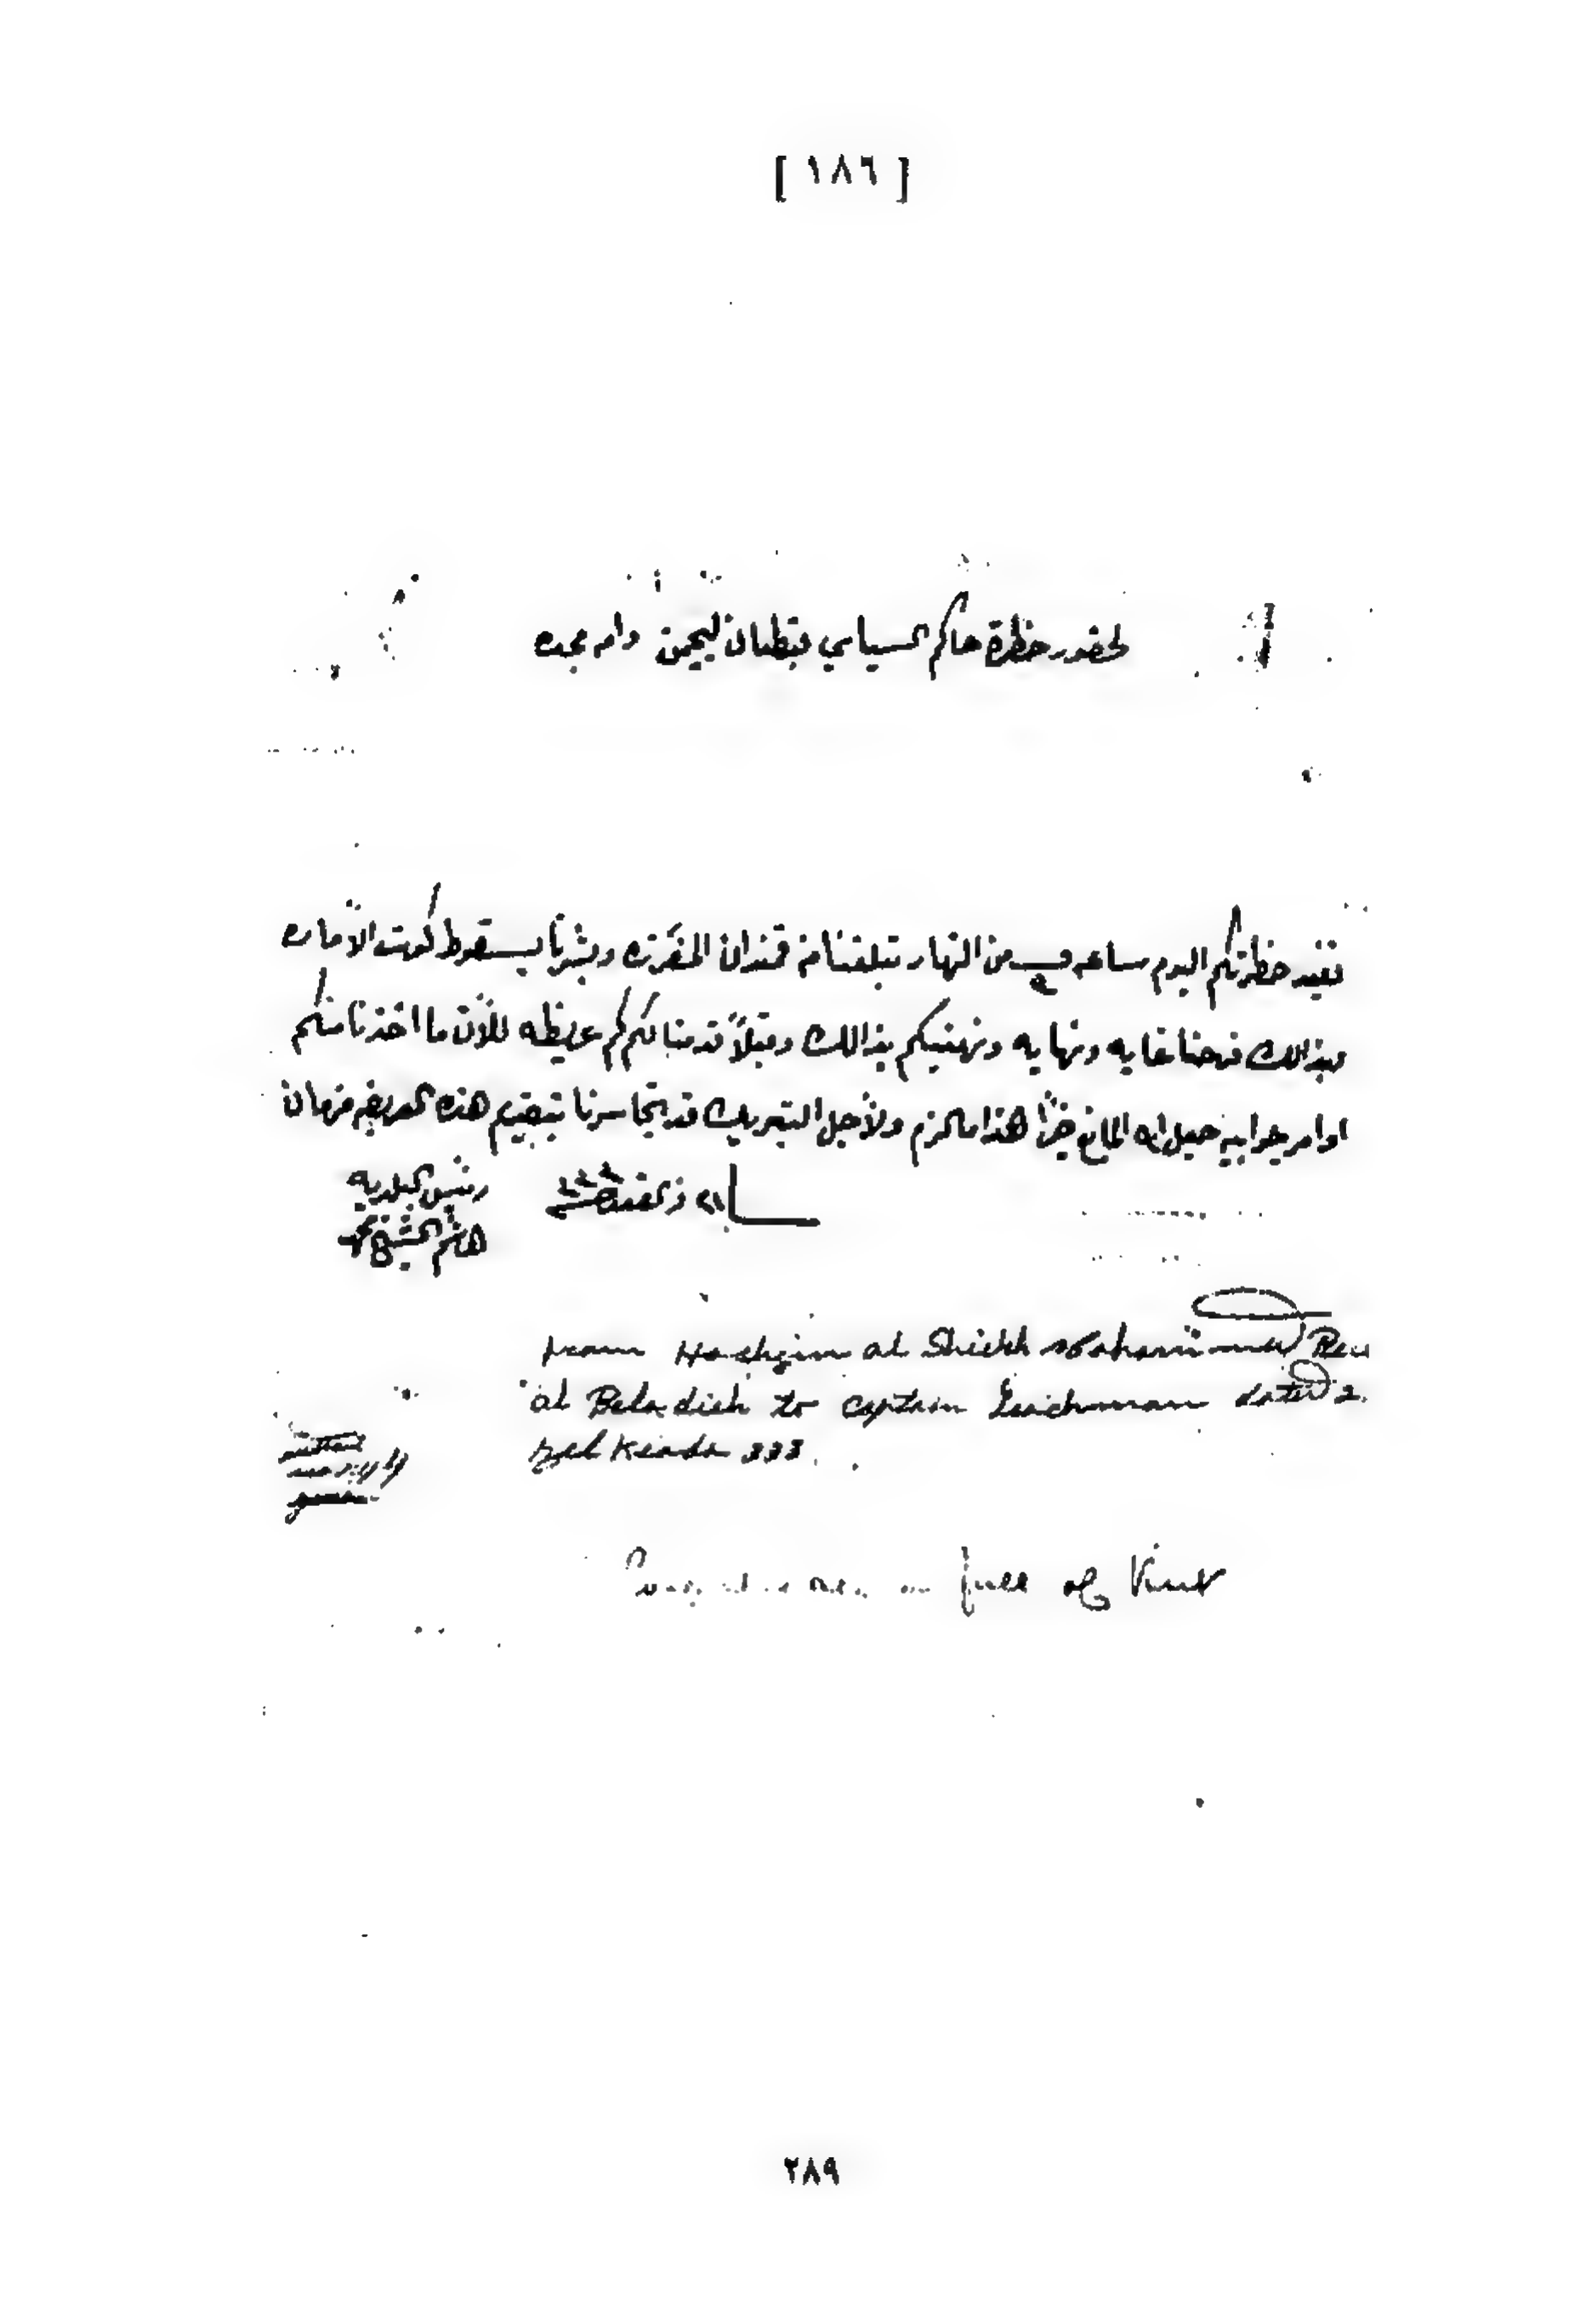 [ ١٨٦ ]
لحضور حظرة حاكم السياسي قبطان ليجمن دام مجده
نفيد حظرتكم اليوم ساعه من النهار تبلغنا من قمندان المفرزه وبشرنا بسقوط كوت الاماره
وبذالك فرحنا غايه ونهايه ونهنيكم بذالك وقبلاً قدمنا لكم عريظه للآن ما اخذنا منكم
اوامر جوابيه جعل الله المانع خيراً هذا مالزم ولأجل التبريك قد تجاسرنا بتقديم هذه العريضه فرمان
٢١ ذي القعده ٣٣٣
رئيس البلديه
هاشم الشيخ محمد
From Hachzim al Sheikh Mahammed Reu
al Beladieh to Captain Leichman dated 2
zel Keada 333.
on fall of Kut
٢٨٩